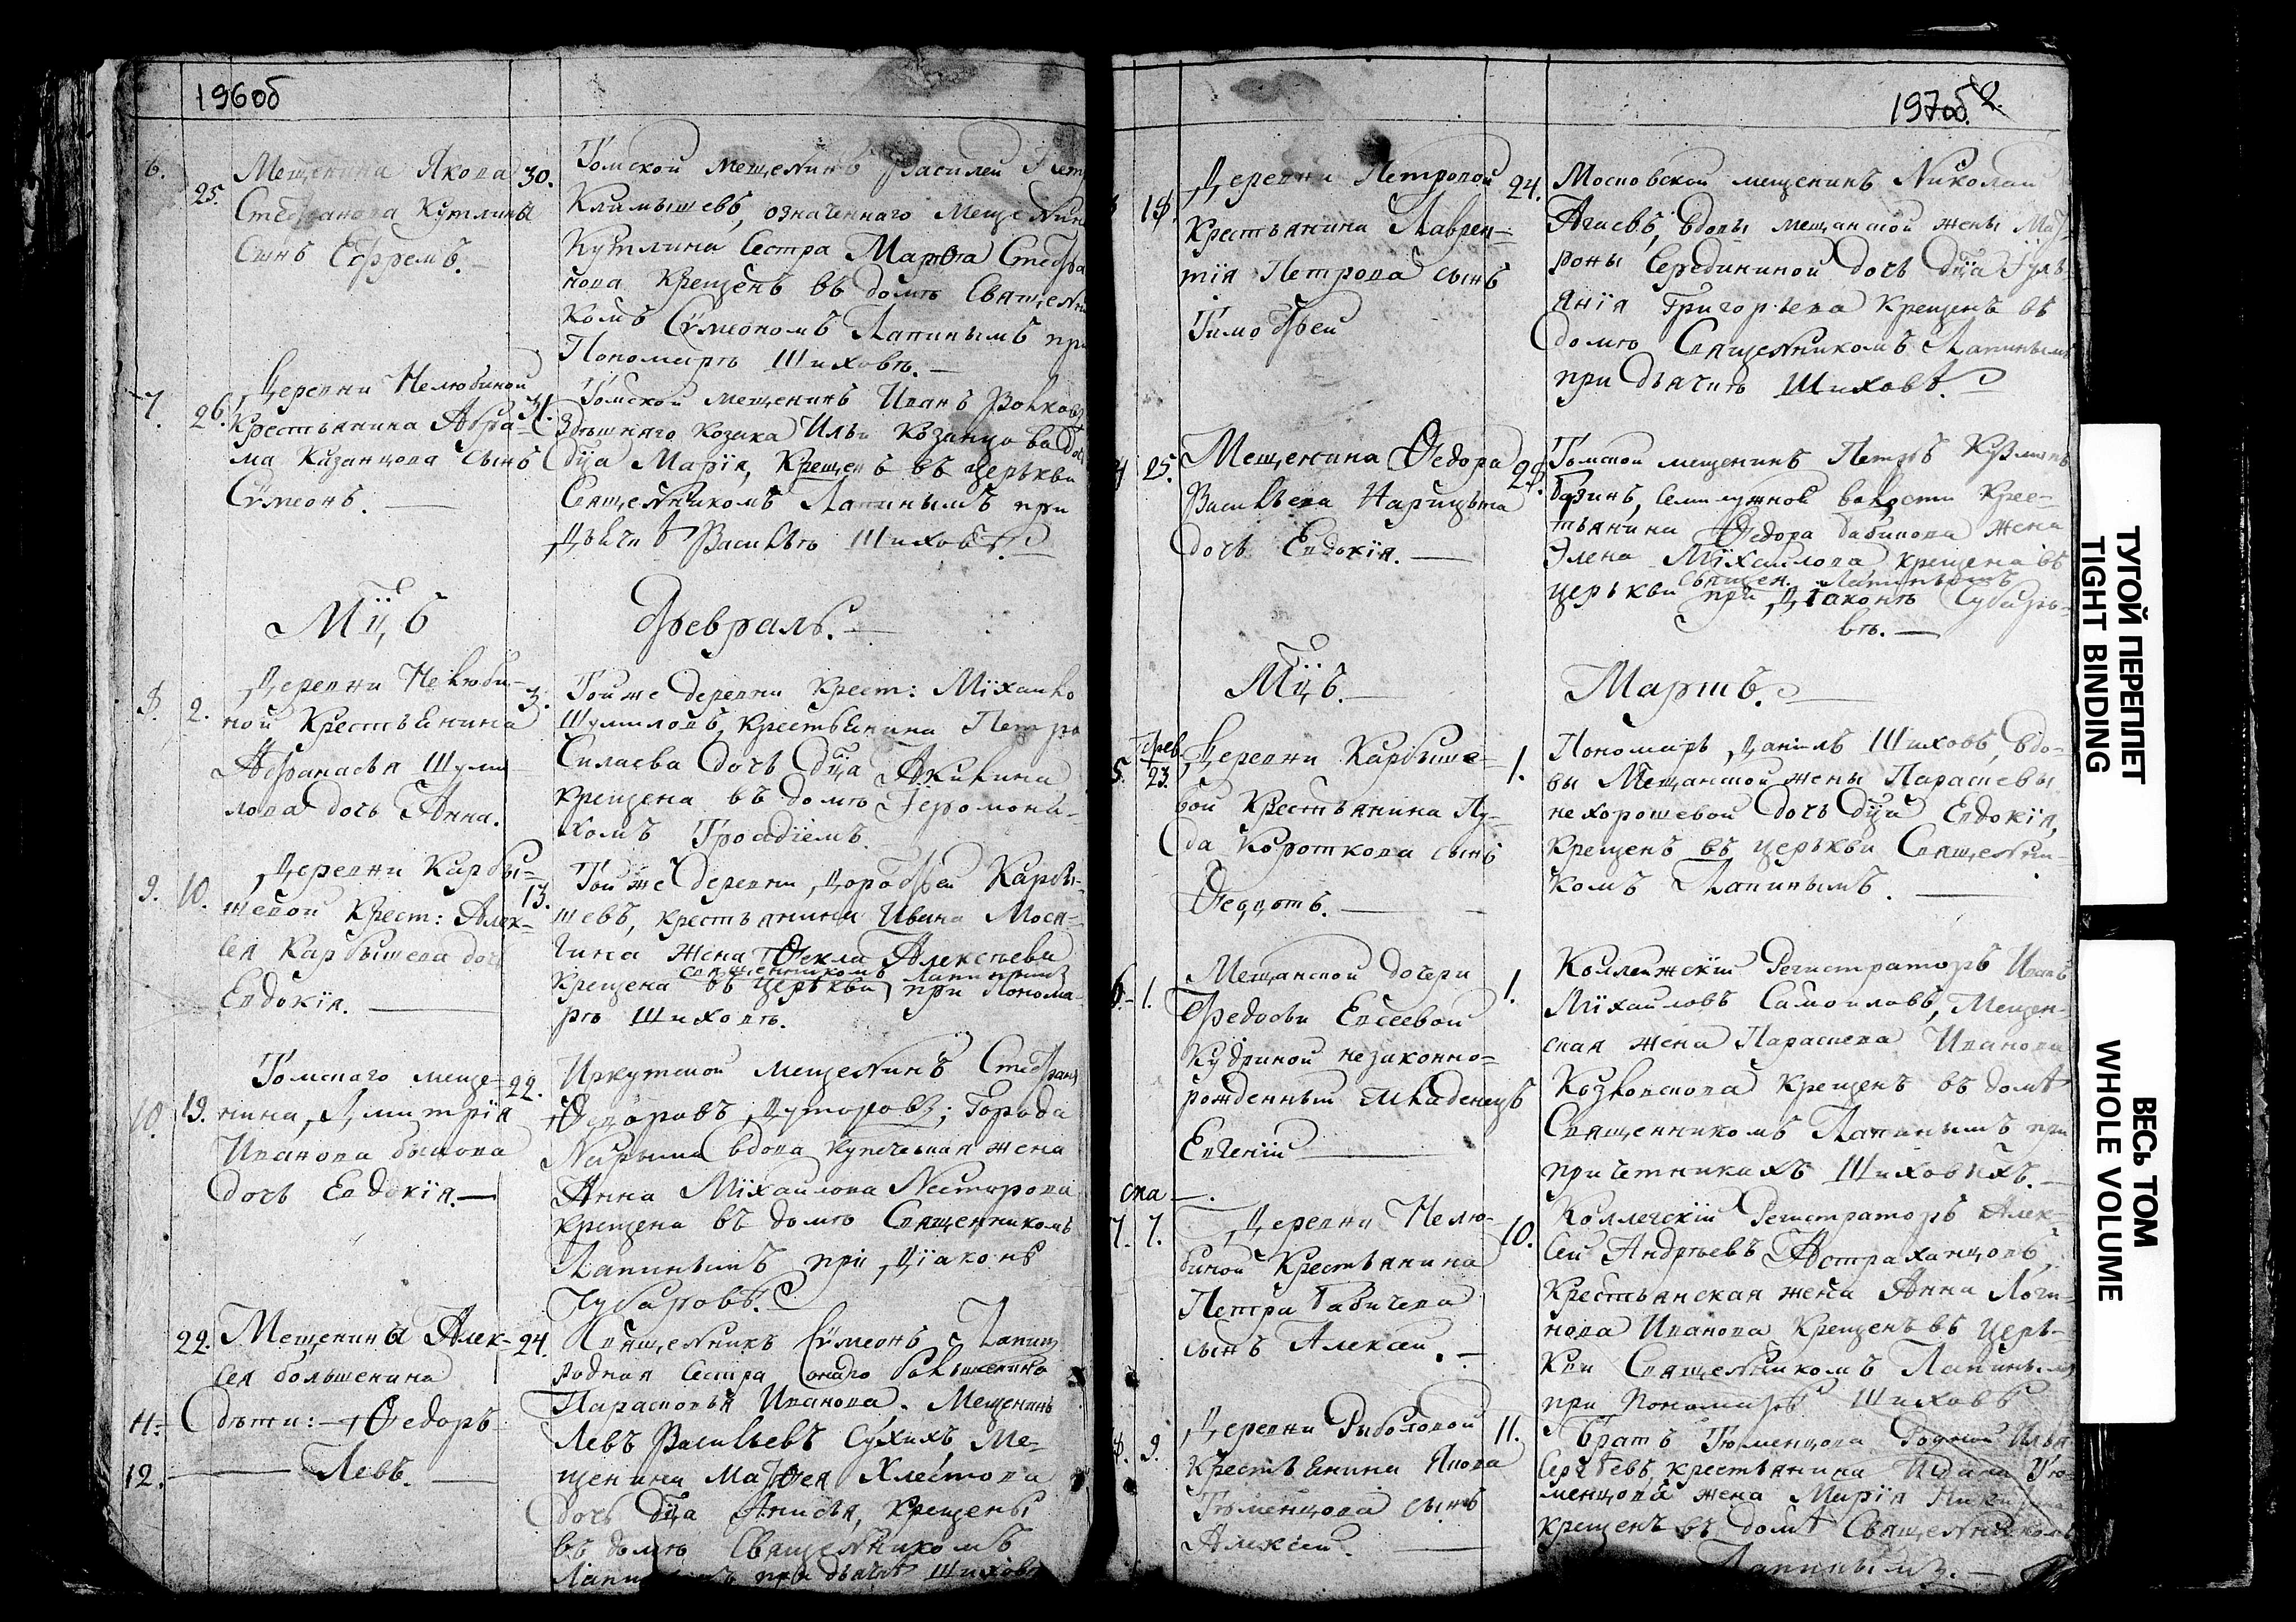 196об
6.
25.
Мещенина Якова
Стефанова Кутлина
сынъ Ефремъ.
30.
Томской мещенинъ Василей Пет
Климышевъ, означеннаго мещенин
Кутлина сестра Марѳа Стефа
нова крещенъ въ домѣ священ
комъ Сѵмеономъ Лапинымъ при
Пономарѣ Шиховѣ.
7.
26.
Деревни Нелюбиной
Крестьянина Абра-
ма Казанцова сынъ
Сѵмеонъ.
31.
Томской мещенинъ Иванъ Волковъ
Здѣшняго козака Ильи Козанцова доч
дц҃а Марїя, Крещенъ въ церькви
Священникомъ Лапинымъ при
Дьячкѣ Васильѣ Шиховѣ.
Мц҃ъ Февраль.
8.
2.
Деревни Нелюби-
ной Крестьянина
Афанасья Шуми
лова дочь Анна.
3.
Той же деревни Крест: Мїхайло
Шумиловъ, крестьянина Петра
Силаева дочь дц҃а Акилина
крещена въ домѣ Іеромона-
хомъ
9.
10.
Деревни Карбы-
шевой Крест: Алек-
сея Карбышева доч
Евдокїя.
13.
Той же деревни Дорофей Карбы-
шевъ, крестьянина Ивана Мося-
гина жена Ѳекла Алексѣева
священникомъ Лапинымъ
Крещена въ церькви, при Понома-
рѣ Шиховѣ.
10.
19.
Томскаго меще-
нина, Дмитрїя
Иванова быкова
дочь Евдокїя.
22.
Иркутской мещенинъ Стефанъ
Ѳедоровъ Дуторовъ; Города
Нарыма вдова купеческая жена
Анна Мїхайлова Несторова
крещена въ домѣ Священникомъ
Лапинымъ при Дїаконѣ
Чубаровѣ.
22.
Мещенина Алек-
сея большенина
11.
дѣти: Ѳедоръ
12.
Левъ.
24.
Священникъ Сѵмеонъ Лапинъ
родная Сестра Большенина
Парасковья Иванова. Мещенинъ
Левъ Васильевъ Сухихъ, Ме-
щенина Матѳея Хлестова
дочь дц҃а Анисья, Крещены
въ домѣ Священникомъ
при дьячкѣ Шиховѣ
197об. 2.
18.
Деревни Петровой
Крестьянина Лаврен-
тїя Петрова сынъ
Тимофей
24.
Московской мещенинъ Николай
Агаевъ, вдовы мещанской жены Мат
роны Середининой дочь дц҃а Уль
янїя Григорьева Крещенъ въ
домѣ Священникомъ Лапинымъ
при дьячкѣ Шиховѣ.
4
25.
Мещенина Ѳедора
Васильева Нарицына
дочь Евдокїя.
Томской мещенинъ Петръ Кузминъ
Семилужной волости Крес-
тьянина Ѳедора бабинова жена
Элена Мїхайлова, крещена въ
священ. Лапинымъ
церькви при Дїаконѣ Чубаро-
вѣ.
Мц҃ъ. Мартъ.
5.
Фев.
23.
Деревни Карбыше-
вой Крестьянина Лу-
Короткова сынъ
Ѳедотъ.
1.
Пономарь Данилъ Шиховъ, вдо-
вы Мещанской жены Парасьевы
нехорошевой дочь дц҃а Евдокїя,
Крещенъ въ церькви Священни-
комъ Лапинымъ.
6.
1.
Мещанской дочери
Федосьи Евсеевой
Кудриной незаконно-
рожденный младенецъ
Евгенїй
1.
Коллежскїй Регистраторъ Иванъ
Мїхайловъ Самойловъ, Мещен-
ская жена Парасева Иванова
Козловскова Крещенъ въ домѣ
Священникомъ Лапинымъ при
причетникахъ Шиховыхъ.
7.
7.
Деревни Нелю-
биной Крестьянина
Петра Бабичева
сынъ Алексей.
10.
Коллегскїй Регистраторъ Алек-
сей Андрѣевъ Астраханцовъ,
Крестьянская жена Анна Логи-
нова Иванова Крещенъ въ Церь-
кви Священникомъ Лапинымъ
при Пономарѣ Шиховѣ
8.
9.
Деревни Рыболовой
крестьянина Якова
Тюменцова сынъ
Алексей.
11.
братъ Тюменцова Родной Илья
Сергѣевъ, крестьянина Тю-
менцова жена Марїя
крещенъ въ домѣ Священникомъ
Лапинымъ.
ТУГОЙ ПЕРЕПЛЕТ
TIGHT BINDING
ВЕСЬ ТОМ
WHOLE VOLUME